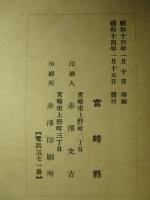 昭和十四年一月十日 印刷
昭和十四年一月十五日 發行
宮崎縣
宮崎市上野町一丁目
印刷人 赤澤文吉
宮崎市上野町三丁目
印刷所 赤澤印刷所
【電話三七一番】